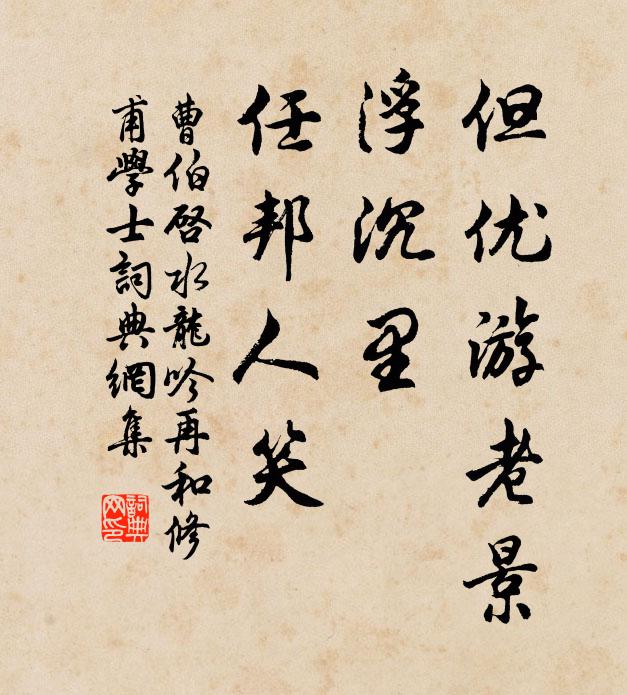 但优游老景
浮沉里
任邦人笑
曹伯啓水龍吟再和修
甫學士詞典網集
詞典
网印